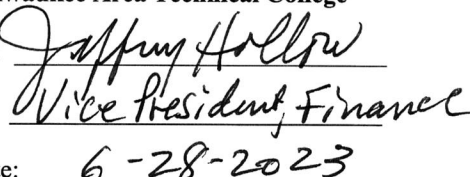 Area Technical College
Jeffrey Hollow
Vice President, Finance
e: 6-28-2023